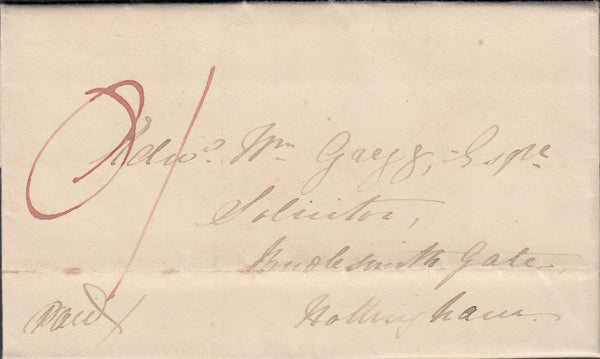 Edwd. Wm Gregg, Esqre
Solicitor,
Bridlesmith Gate,
Nottingham.
Paid